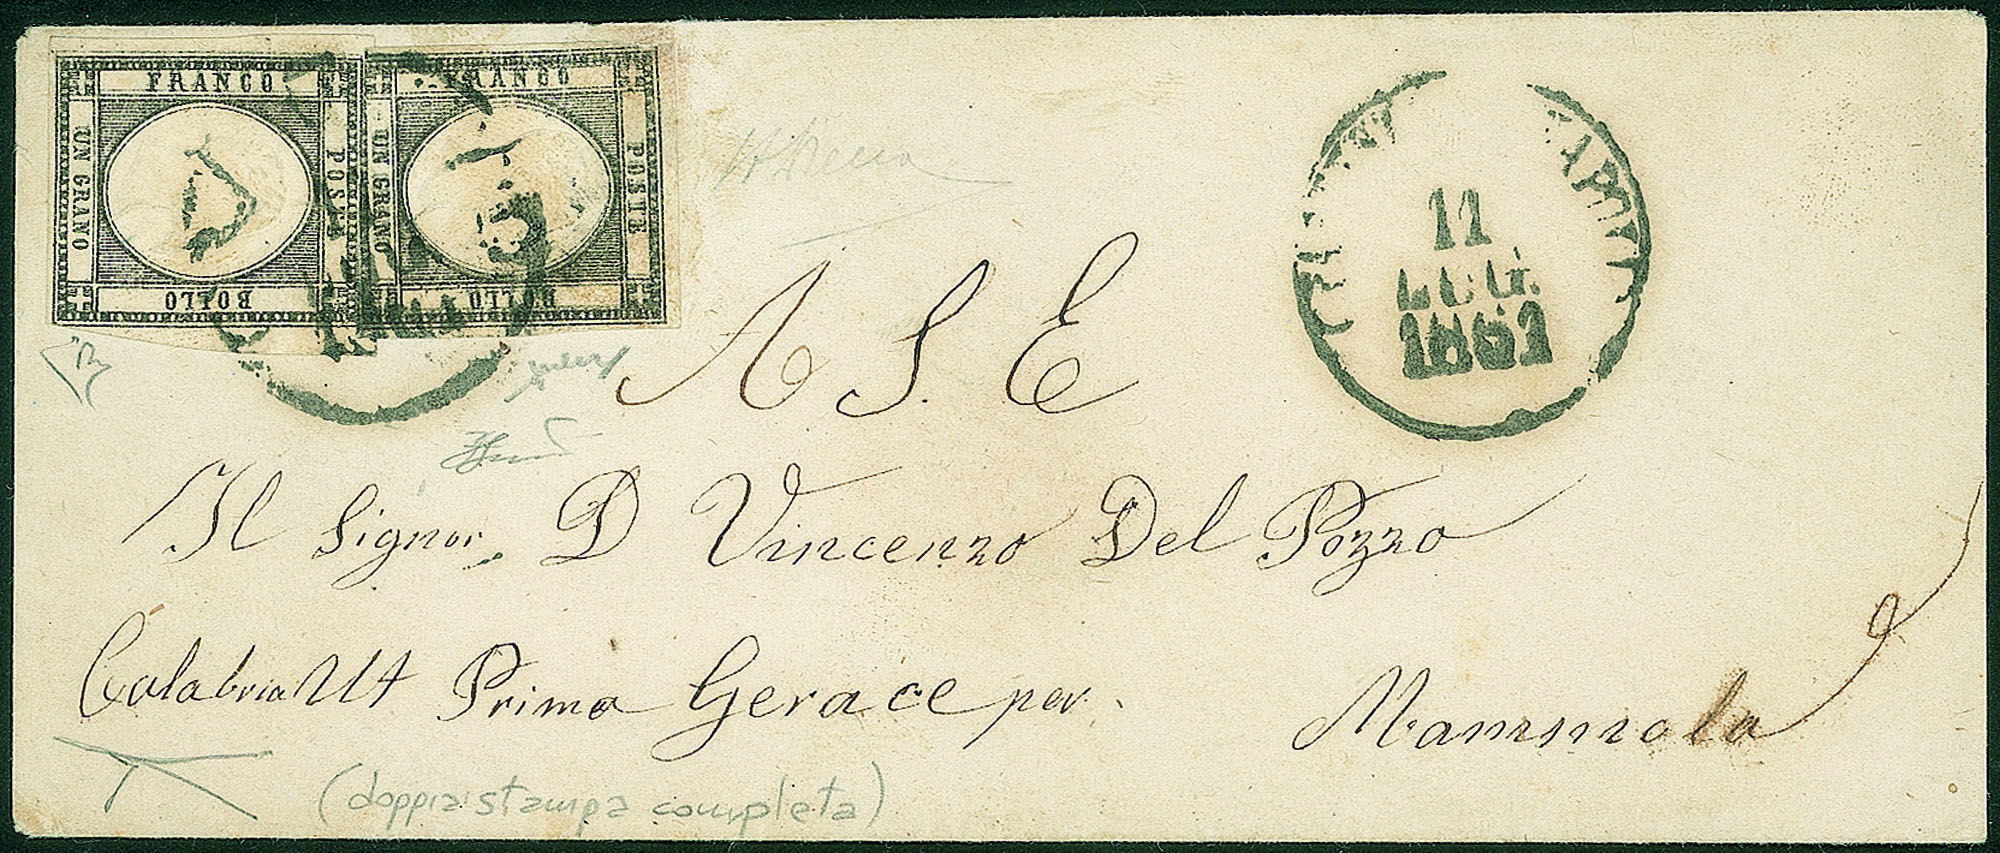 FRANCO
POSTE
BOLLO
UN GRANO
FRANCO
POSTE
BOLLO
UN GRANO
11
LUG.
1861
A S. E
Il Signor D Vincenzo Del Pozzo
Calabria Ult Prima Gerace per
Mammola
(doppia stampa completa)